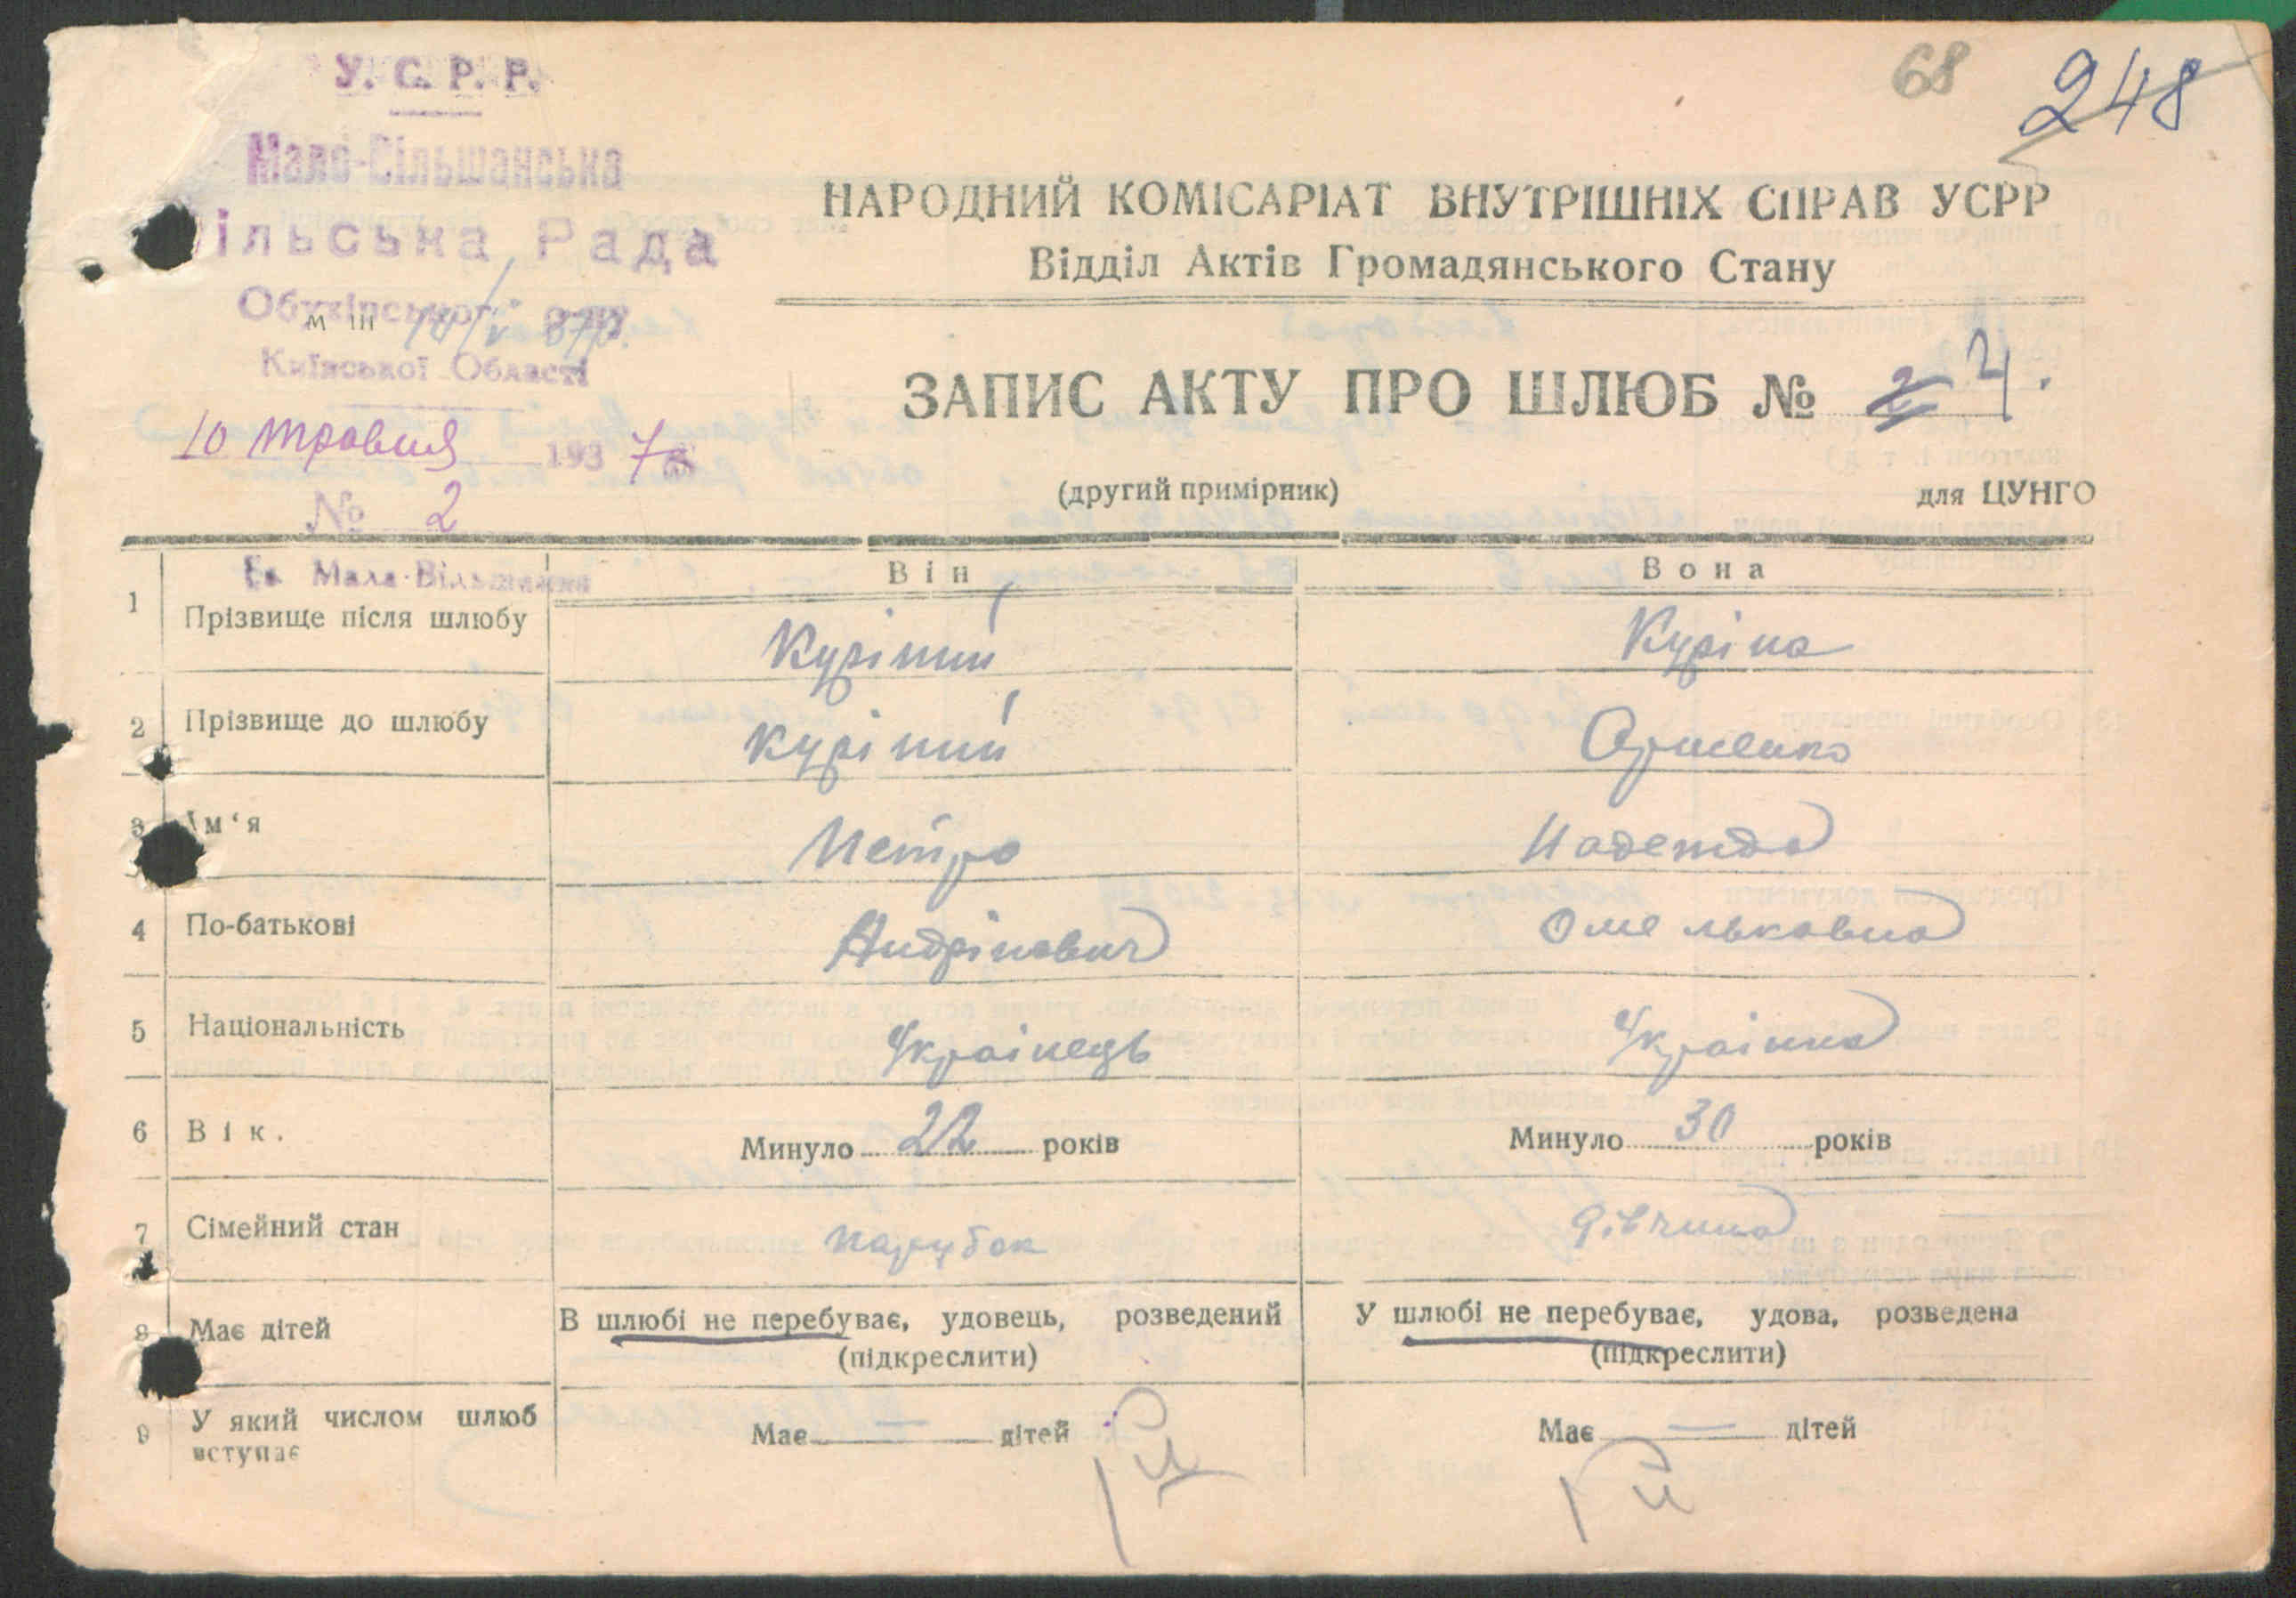 68 248
У. С. Р. Р.
Мало-Вільшанська
ільська Рада
Обухівського р-ну
м ін 10/V 37р.
Київської Області
10 травня 1937 р.
№ 2
с. Мала-Вільшанка
НАРОДНИЙ КОМІСАРІАТ ВНУТРІШНІХ СПРАВ УСРР
Відділ Актів Громадянського Стану
ЗАПИС АКТУ ПРО ШЛЮБ № 2 4.
(другий примірник) для ЦУНГО
Він Вона
1 Прізвище після шлюбу Куріпий Куріпа
2 Прізвище до шлюбу Куріпий
3 Ім‘я Петро Надежда
4 По-батькові Андрійович Омельковна
5 Національність Українець Українка
6 Вік. Минуло 22 років Минуло 30 років
7 Сімейний стан парубок дівчина
8 Має дітей В шлюбі не перебуває, удовець, розведений У шлюбі не перебуває, удова, розведена
(підкреслити) (підкреслити)
9 У який числом шлюб вступає Має — дітей Має — дітей